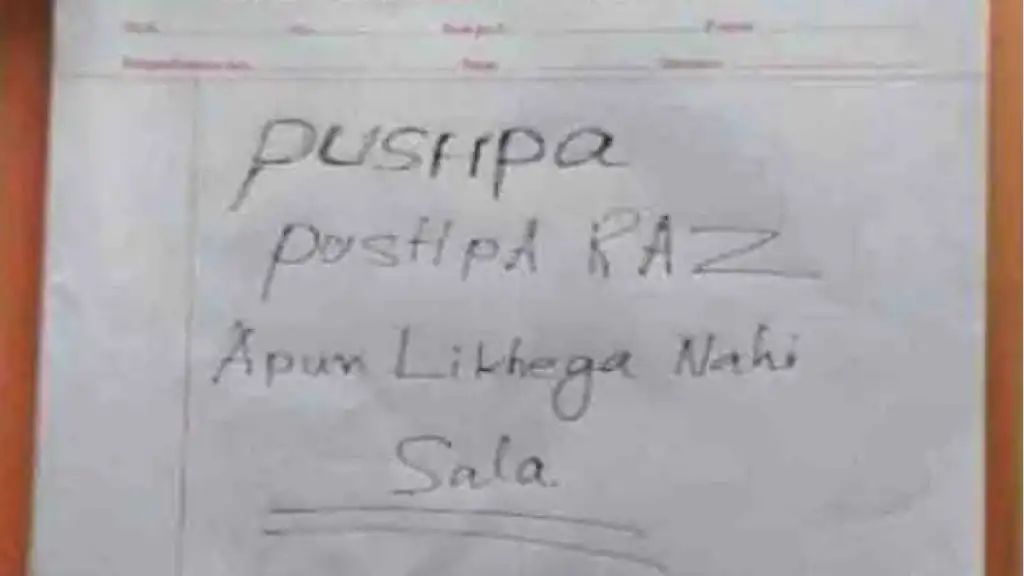 PUSHpa
pusHpA RAZ
Apun Likhega Nahi
Sala